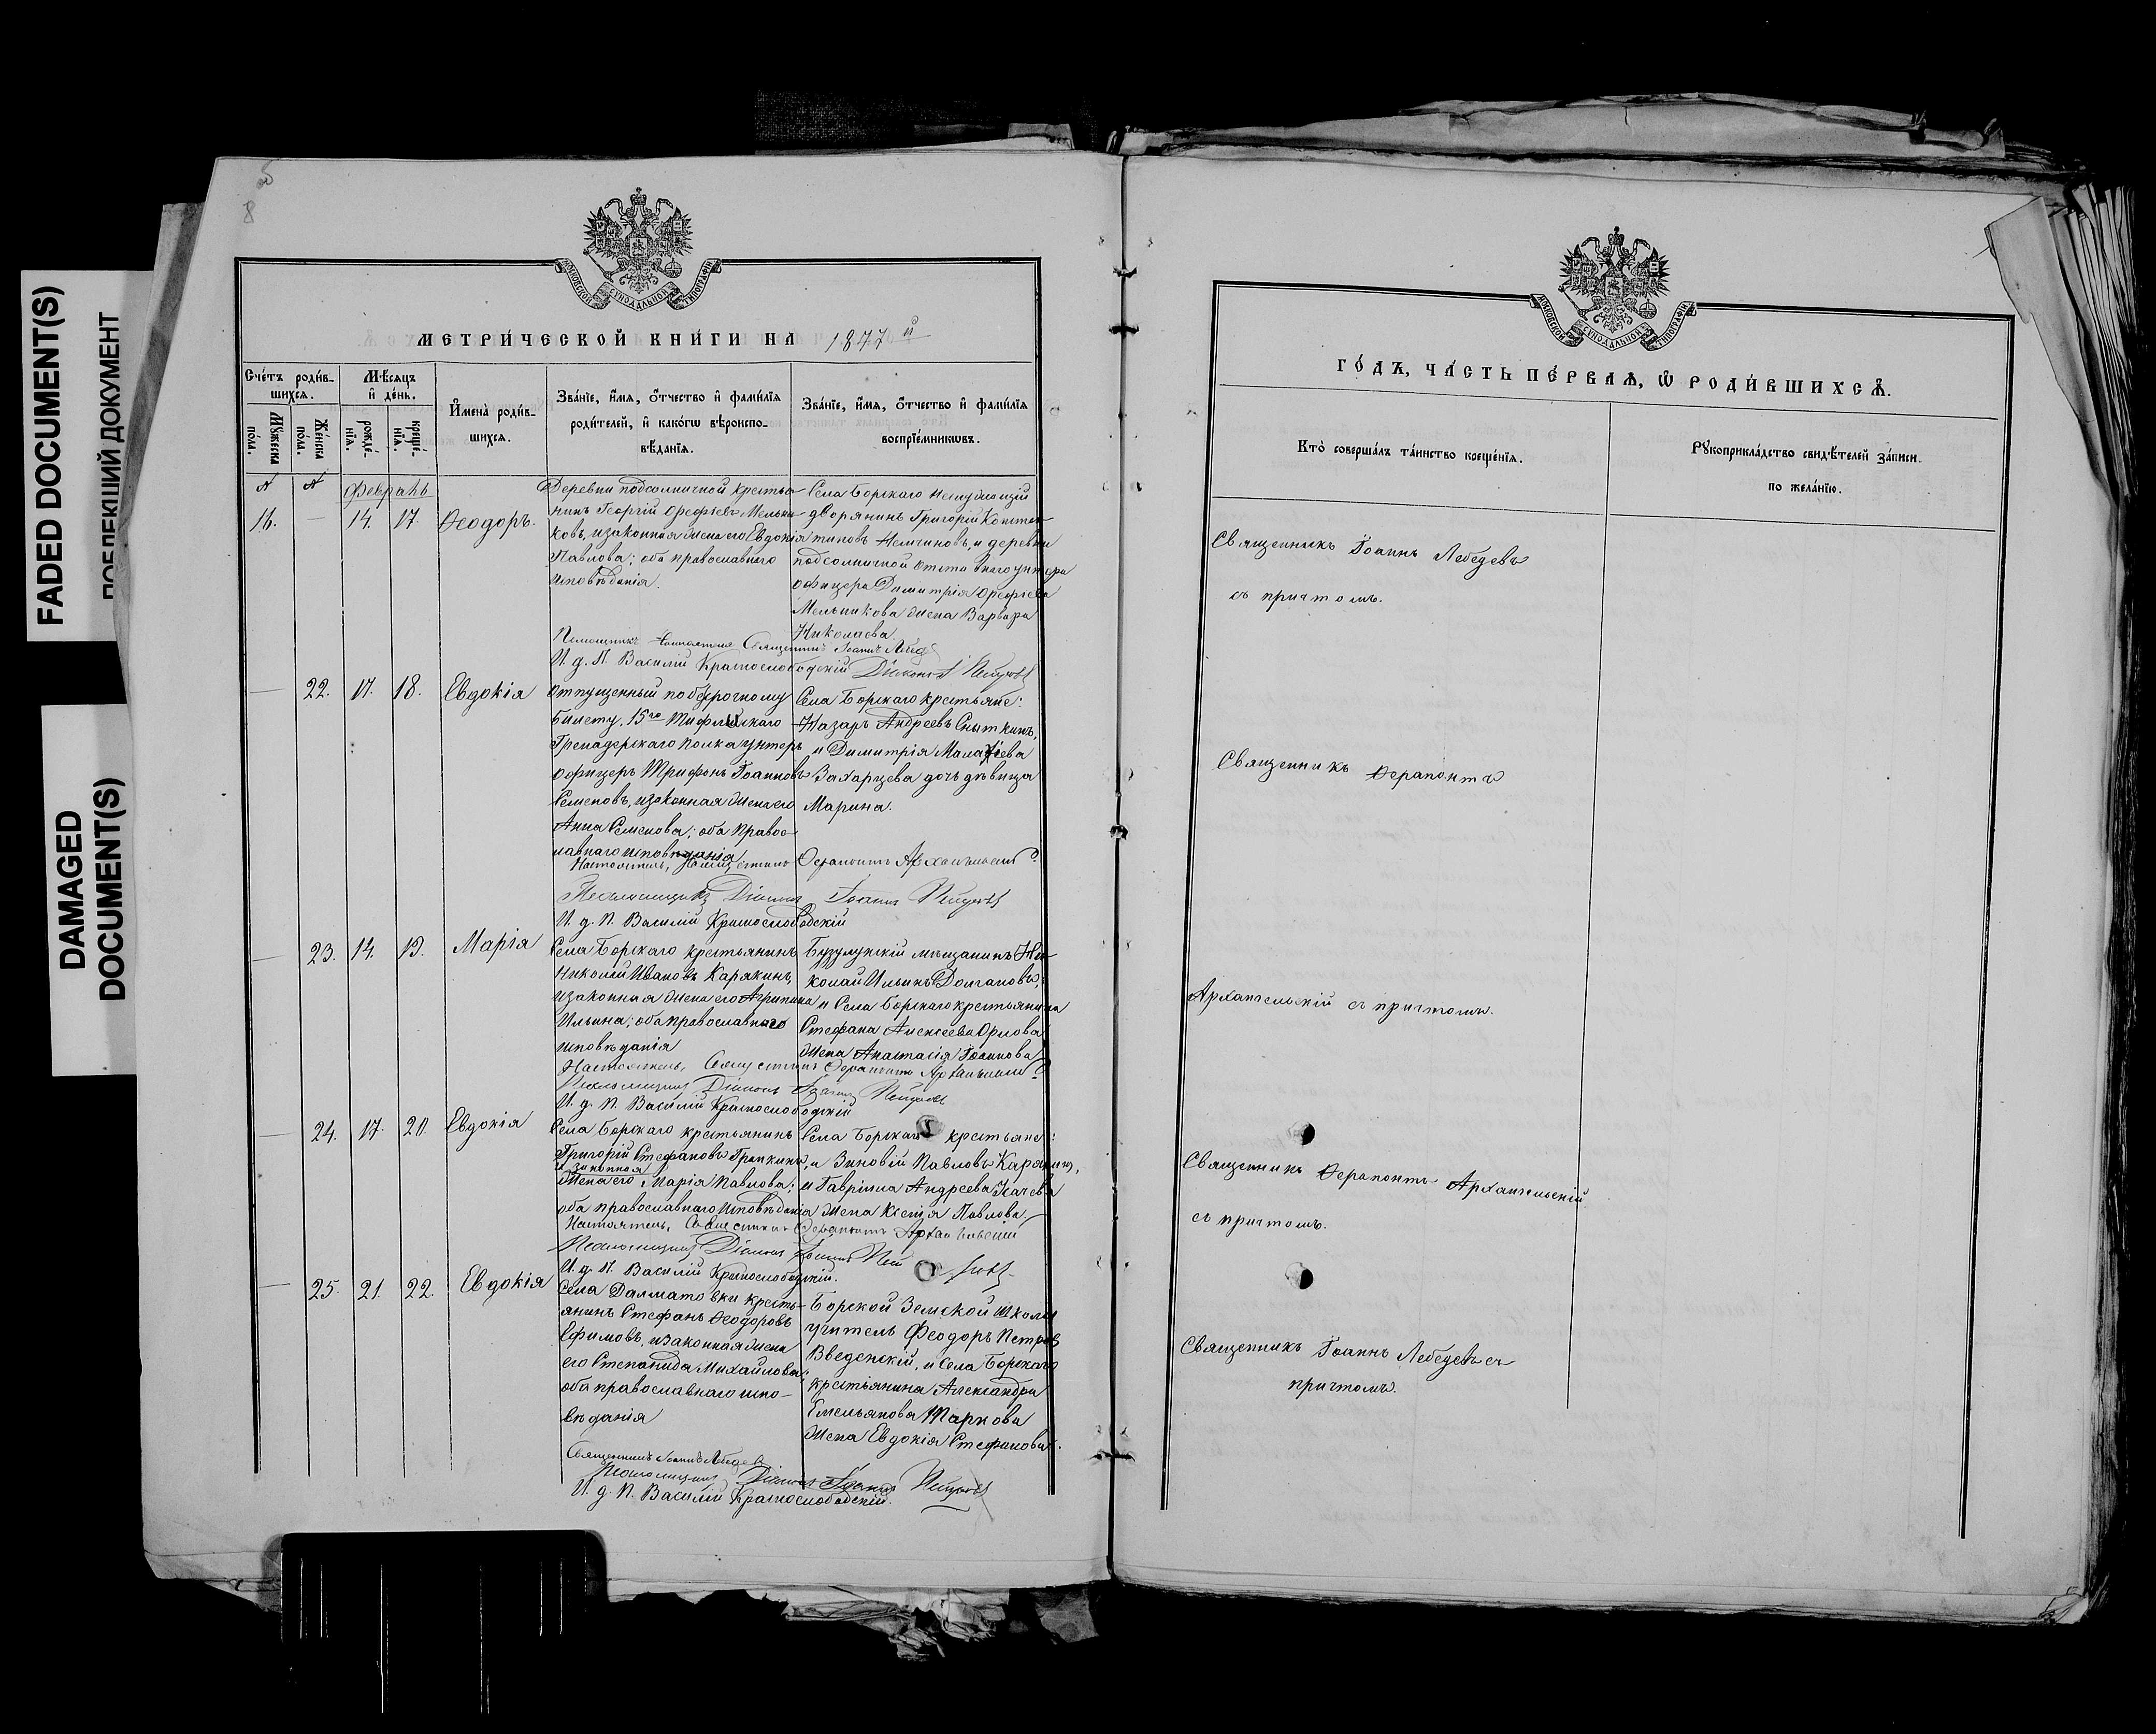 FADED DOCUMENT(S)
DAMAGED
DOCUMENT(S)
8
МОСКОВСКОЙ СѴНОДАЛЬНОЙ ТИПОГРАФІИ
МЕТРИЧЕСКОЙ КНИГИ НА 1877 й
Счетъ родив-
шихся.
Мужеска
пола.
Женска
пола.
Мѣсяцъ
и день.
рожде-
нія.
креще-
нія.
Имена родив-
шихся.
Званіе, имя, отчество и фамилія
родителей, и какогѡ вѣроиспо-
вѣданія.
Званіе, имя, отчество и фамилія
воспріемникωвъ.
Февраль
16. — 14. 17. Ѳеодоръ.
Деревни Подсолничной крестья-
нинъ Георгій Орефьевъ Мельни-
ковъ, и законная жена его Евдокія
Павлова; оба православнаго
исповѣданія.
Села Борскаго
дворянинъ Григорій Констан-
тиновъ и деревни
Подсолничной отставнаго унтеръ
офицера Димитрія Орефьева
Мельникова жена Варвара
Николаева.
Священникъ Іоаннъ Лебед
И. д. П. Василій Краснослободскій Діаконъ
— 22. 17. 18. Евдокія
Отпущенный по безсрочному
билету, 15го Тифлискаго
Гренадерскаго полка унтеръ
офицеръ Трифонъ Іоанновъ
Семеновъ, и законная жена его
Анна Семенова; оба право-
славнаго исповѣданія
Села Борскаго крестьяне:
Назаръ Андреевъ Сныткинъ,
и Димитрія Малафіева
Захарцева дочь дѣвица
Марина.
Настоятель, Священникъ Ѳерапонтъ Архангельскій
Псаломщикъ Діаконъ Іоаннъ
И. д. П. Василій Краснослободскій
— 23. 14. 19. Марія
Села Борскаго крестьянинъ
Николай Ивановъ Карякинъ,
и законная жена его Агрипина
Ильина; оба православнаго
исповѣданія
Бузулукскій мѣщанинъ Ни-
колай Ильинъ Долгановъ,
и Села Борскаго крестьянина
Стефана Алексѣева Орлова
жена Анастасія Іоаннова
Настоятель, Священникъ Ѳерапонтъ Архангельскій
Псаломщикъ Діаконъ Іоаннъ
И. д. П. Василій Краснослободскій
— 24. 17. 20. Евдокія
Села Борскаго крестьянинъ
Григорій Стефановъ Гранкинъ, и
законная
жена его Марія Павлова;
оба православнаго исповѣданія
Села Борскаго крестьяне:
Зиновій Павловъ Карякинъ,
и Гавріила Андреева
жена Ксенія Павлова.
Настоятель, Священникъ Ѳерапонтъ Архангельскій
Псаломщикъ Діаконъ Іоаннъ
И. д. П. Василій Краснослободскій.
— 25. 21. 22. Евдокія
Села Далматовки кресть-
янинъ Стефанъ Ѳеодоровъ
Ефимовъ, и законная жена
его Степанида Михайлова;
оба православнаго испо-
вѣданія
Борской Земской школы
учитель Феодоръ Петровъ
Введенскій, и Села Борскаго
крестьянина Александра
Емельянова
жена Евдокія Стефанова.
Священникъ Іоаннъ Лебедевъ
Псаломщикъ Діаконъ Іоаннъ
И. д. П. Василій Краснослободскій.
МОСКОВСКОЙ СѴНОДАЛЬНОЙ ТИПОГРАФІИ
ГОДЪ, ЧАСТЬ ПЕРВАЯ, Ѡ РОДИВШИХСЯ.
Кто совершалъ таинство крещенія.
Рукоприкладство свидѣтелей записи
по желанію.
Священникъ Іоаннъ Лебедевъ
съ причтомъ.
Священникъ Ѳерапонтъ
Архангельскій съ причтомъ.
Священникъ Ѳерапонтъ Архангельскій
съ причтомъ.
Священникъ Іоаннъ Лебедевъ съ
причтомъ.